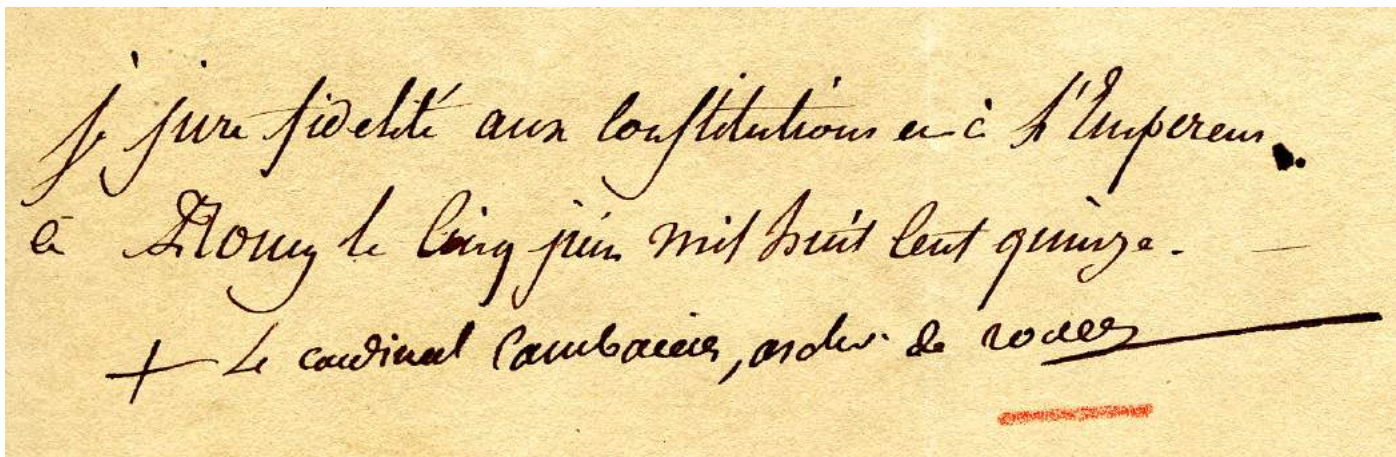 je jure fidelité aux constitutions et à L'Empereur.
à Rouen le cinq juin mil huit cent quinze.
+ Le cardinal Cambacérès, archev. de rouen